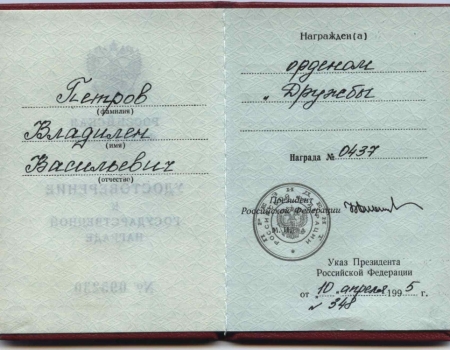 Петров
(фамилия)
Владилен
(имя)
Васильевич
(отчество)
Награжден(а)
орденом
„Дружбы
Награда № 0437
Президент
Российской Федерации
М.П.
Указ Президента
Российской Федерации
от „10 апреля 1995 г.
№ 348
УДОСТОВЕРЕНИЕ
К
ГОСУДАРСТВЕННОЙ
НАГРАДЕ